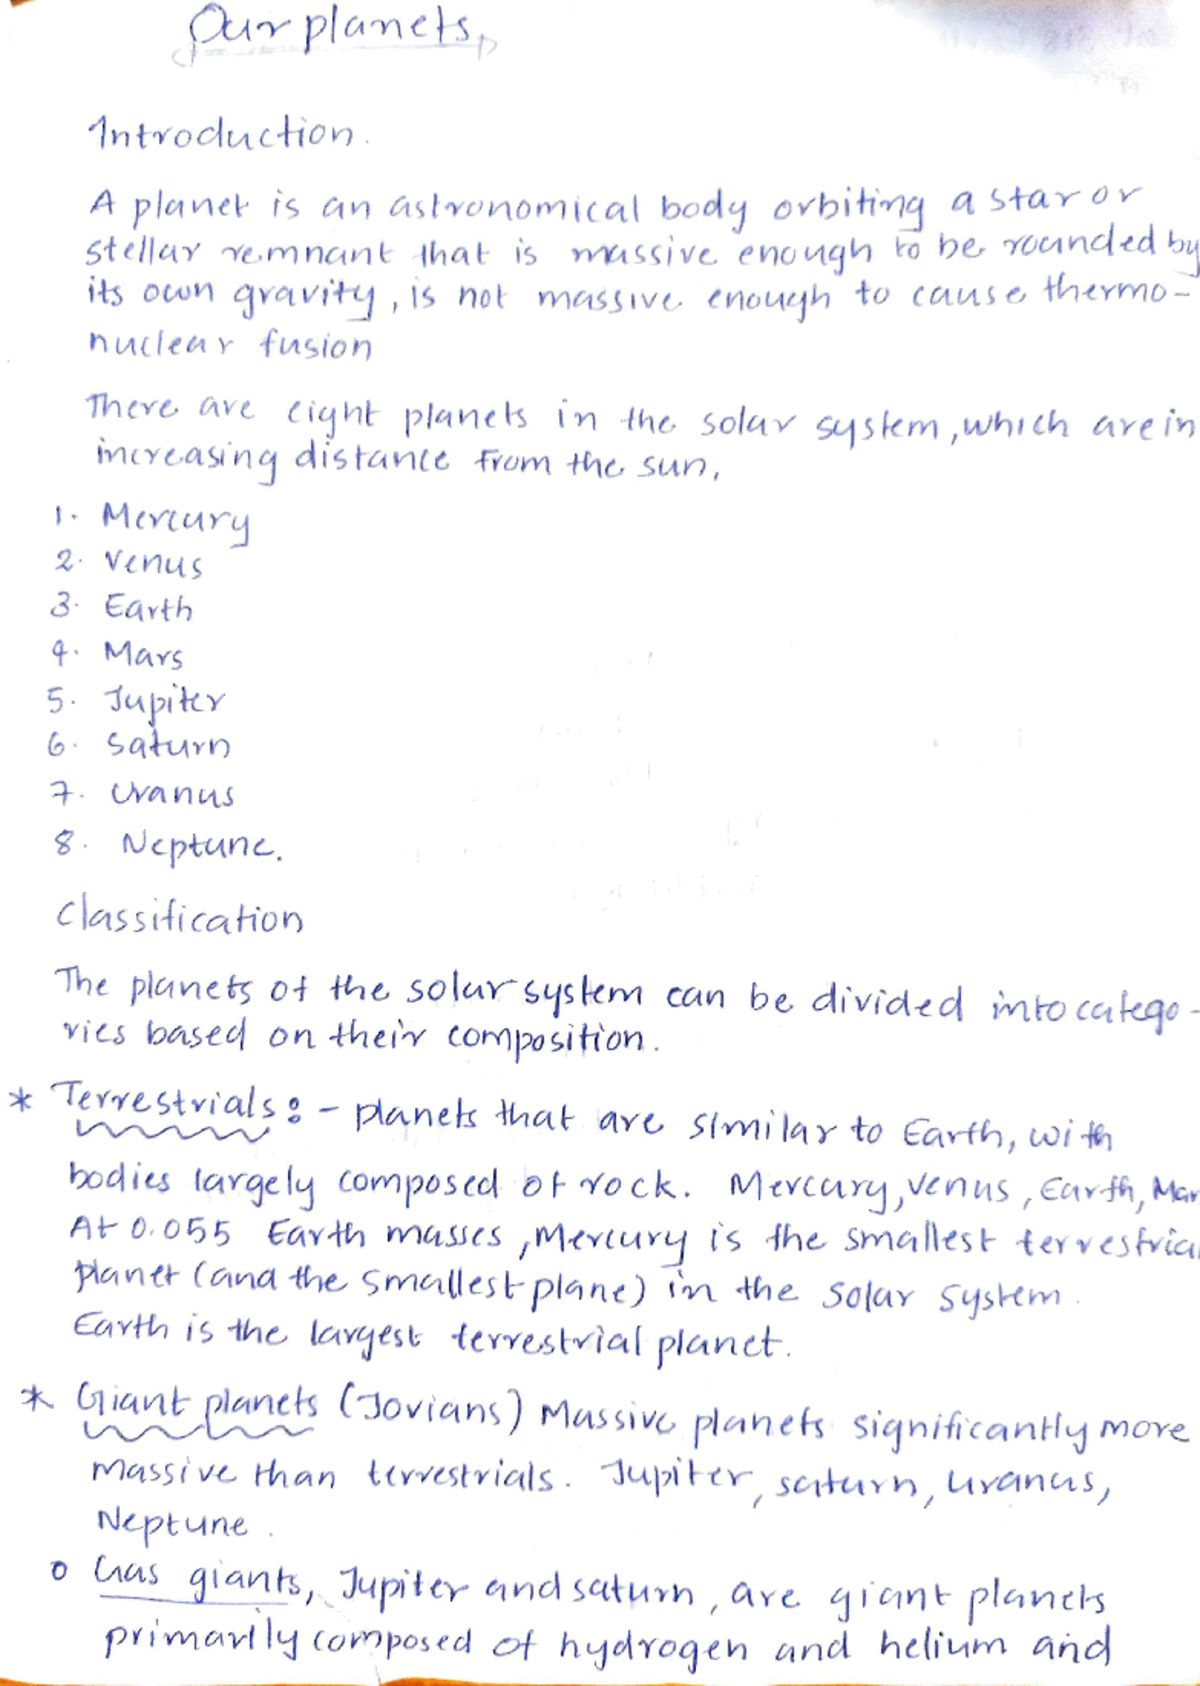 Our planets
Introduction.
A planet is an astronomical body orbiting a star or
stellar remnant that is massive enough to be rounded by
its own gravity, is not massive enough to cause thermo-
nuclear fusion
There are eight planets in the solar system, which are in
increasing distance from the sun,
1. Mercury
2. Venus
3. Earth
4. Mars
5. Jupiter
6. Saturn
7. Uranus
8. Neptune.
Classification
The planets of the solar system can be divided into catego-
ries based on their composition.
* Terrestrials :- planets that are similar to Earth, with
bodies largely composed of rock. Mercury, Venus, Earth, Mar
At 0.055 Earth masses, Mercury is the smallest terrestria
planet (and the smallest plane) in the solar system.
Earth is the largest terrestrial planet.
* Giant planets (Jovians) Massive planets significantly more
massive than terrestrials. Jupiter, saturn, uranus,
Neptune.
o Gas giants, Jupiter and saturn, are giant planets
primarily composed of hydrogen and helium and